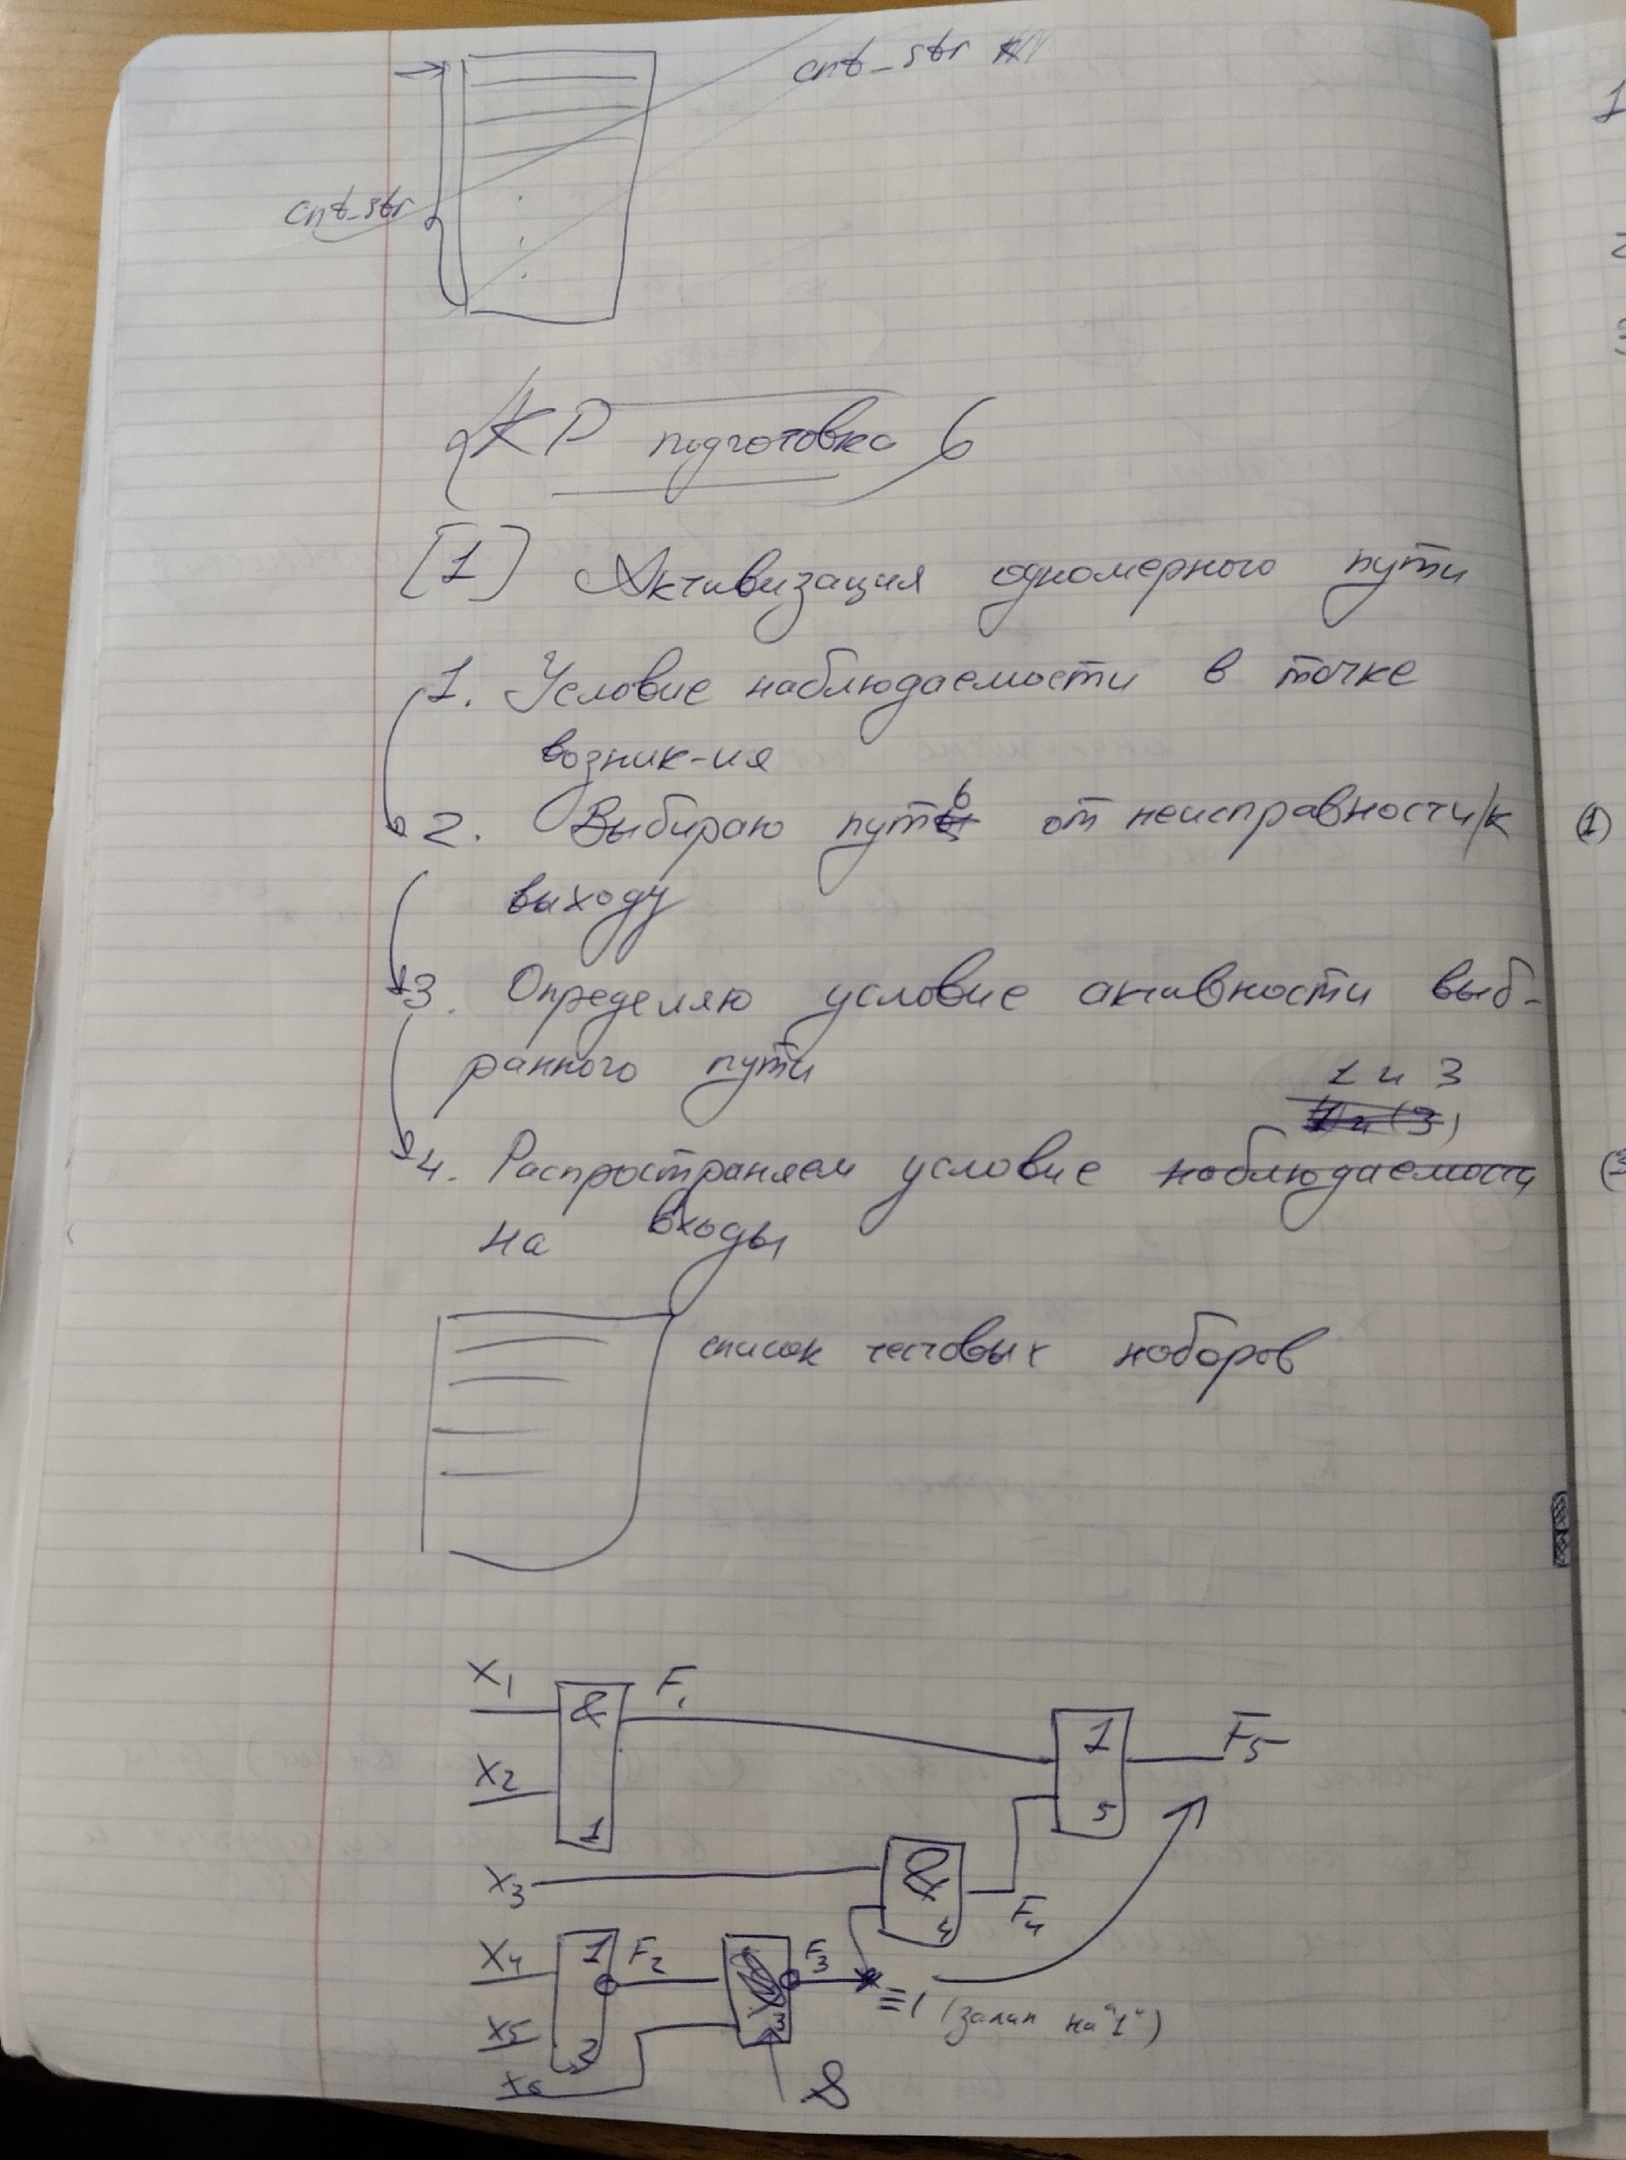 cnt_str
cnt_str
КР подготовка
[1] Активизация одномерного пути
1. Условие наблюдаемости в точке
возник-ия
2. Выбираю путь от неисправности/к
выходу
(1)
3. Определяю условие активности выб-
ранного пути
1 и 3
1 и (3)
4. Распространяем условие наблюдаемости
на входы
список тестовых наборов
X1 & F1
X2 1
1 F5
5
X3 & F4
4
X4 1 F2 F3
≡1 (залип на "1")
X5 2 3
X6 &
1
2
3